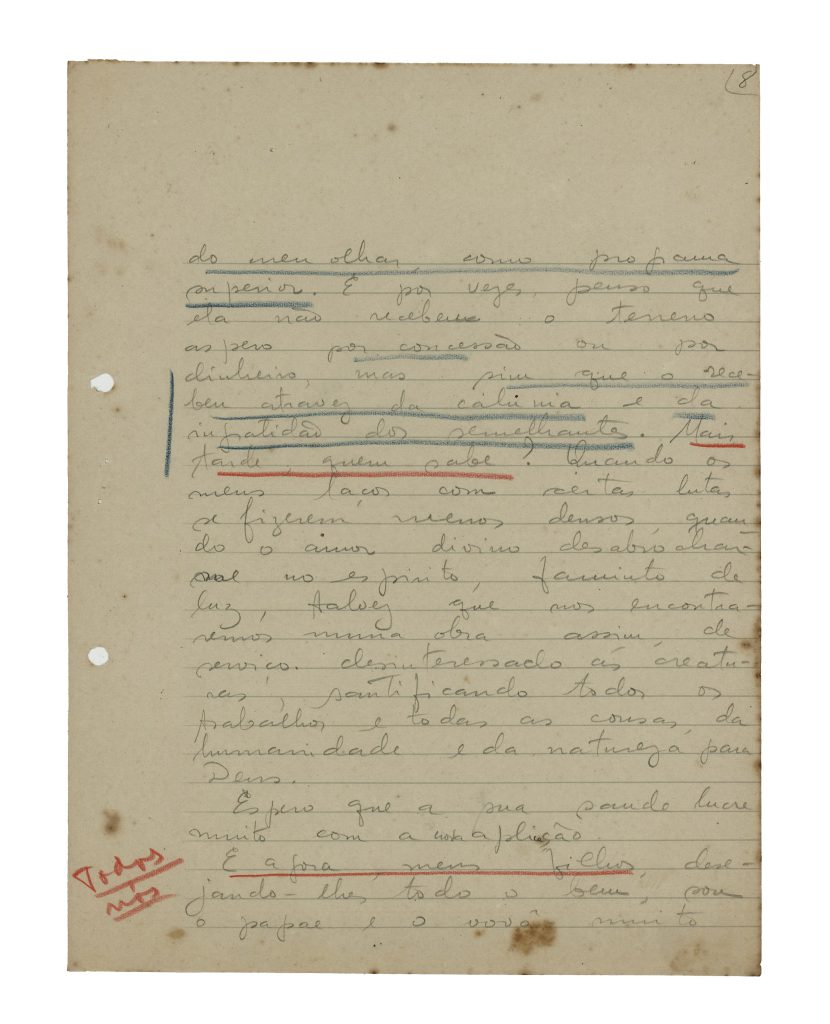 (8
do meu olhar, como programa
superior. E por vezes, penso que
ela não recebeu o terreno
aspero por concessão ou por
dinheiro, mas sim que o rece-
beu atravez da calúnia e da
ingratidão dos semelhantes. Mais
tarde, quem sabe? Quando os
meus laços com certas lutas
se fizerem menos densos, quan-
do o amor divino desabrochar-
me no espirito, faminto de
luz, talvez que nos encontra-
remos numa obra assim, de
serviço desinteressado ás creatu-
ras, santificando todos os
trabalhos e todas as cousas da
humanidade e da natureza para
Deus.
Espero que a sua saude lucre
muito com a nova aplicação.
E agora, meus filhos, dese-
jando-lhes todo o bem, sou
o papae e o vovô muito
Todos
nós